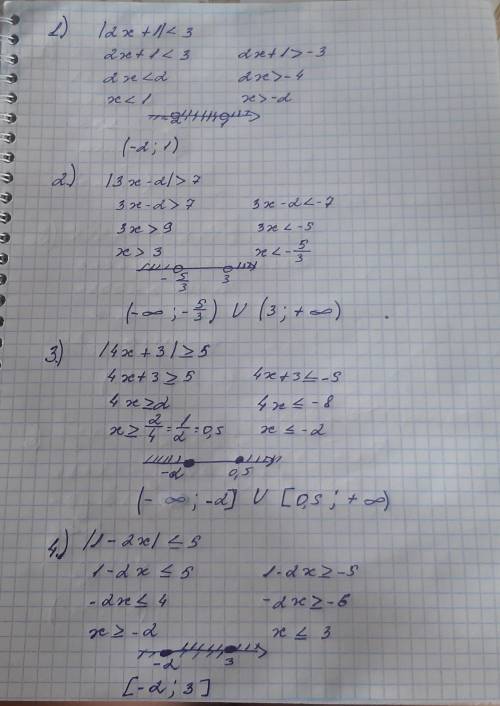 1.) |2x+1|<3
2x+1<3 2x+1>-3
2x<2 2x>-4
x<1 x>-2
-2 1
(-2; 1)
2.) |3x-2|>7
3x-2>7 3x-2<-7
3x>9 3x<-5
x>3 x<-5/3
-5/3 3
(-∞; -5/3) ∪ (3; +∞)
3.) |4x+3|≥5
4x+3≥5 4x+3≤-5
4x≥2 4x≤-8
x≥2/4=1/2=0,5 x≤-2
-2 0,5
(-∞; -2] ∪ [0,5; +∞)
4.) |1-2x|≤5
1-2x≤5 1-2x≥-5
-2x≤4 -2x≥-6
x≥-2 x≤3
-2 3
[-2; 3]